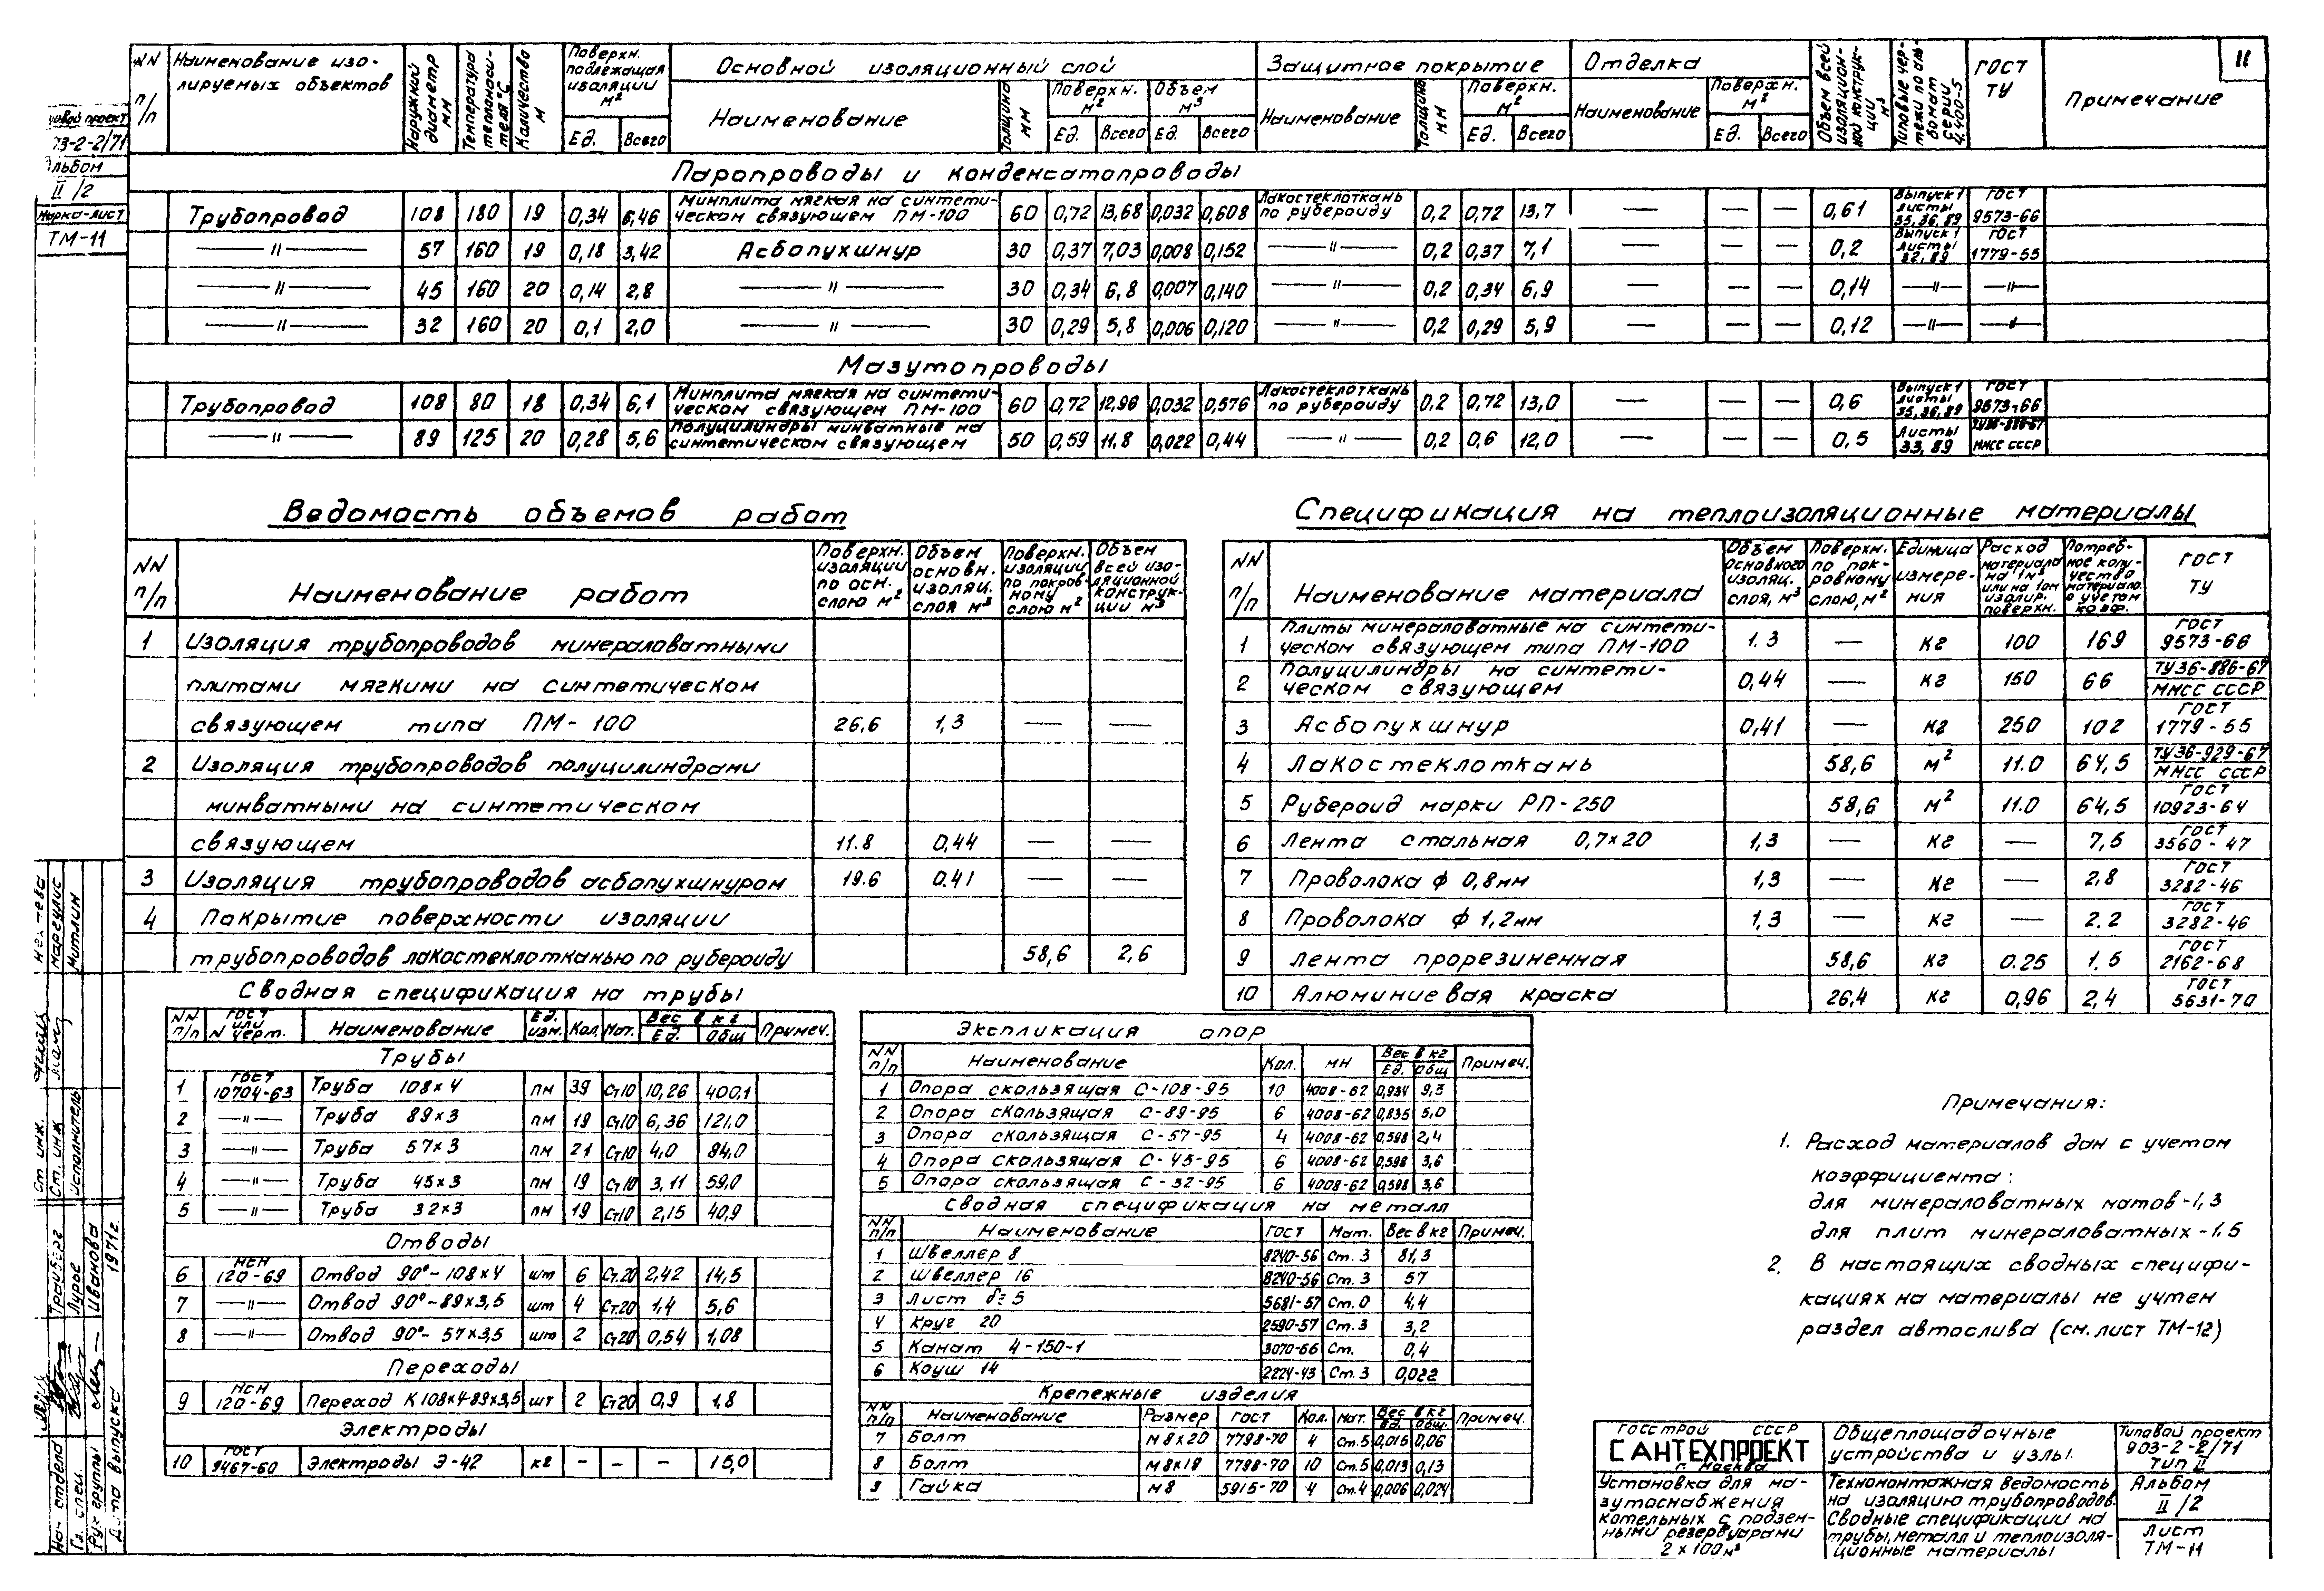 11
NN п/п | Наименование изолируемых объектов | Наружный диаметр мм | Температура теплоносителя °С | Количество м | Поверхн. подлежащая изоляции м² Ед. Всего | Основной изоляционный слой: Наименование, Толщина мм, Поверхн. м² Ед. Всего, Объем м³ Ед. Всего | Защитное покрытие: Наименование, Толщина мм, Поверхн. м² Ед. Всего | Отделка: Наименование, Поверхн. м² Ед. Всего | Объем всей изоляционной конструкции м³ | Типовые чертежи по альбомам серии 4.900-5 | ГОСТ ТУ | Примечание
Паропроводы и конденсатопроводы
Трубопровод 108 180 19 0,34 6,46 Минплита мягкая на синтетическом связующем ПМ-100 60 0,72 13,68 0,032 0,608 Лакостеклоткань по рубероиду 0,2 0,72 13,7 — — — 0,61 Выпуск 1 листы 35,36,89 ГОСТ 9573-66
—"— 57 160 19 0,18 3,42 Асбопухшнур 30 0,37 7,03 0,008 0,152 —"— 0,2 0,37 7,1 — — — 0,2 Выпуск 1 листы 32,89 ГОСТ 1779-55
—"— 45 160 20 0,14 2,8 —"— 30 0,34 6,8 0,007 0,140 —"— 0,2 0,34 6,9 — — — 0,14 —"— —"—
—"— 32 160 20 0,1 2,0 —"— 30 0,29 5,8 0,006 0,120 —"— 0,2 0,29 5,9 — — — 0,12 —"— —"—
Мазутопроводы
Трубопровод 108 80 18 0,34 6,1 Минплита мягкая на синтетическом связующем ПМ-100 60 0,72 12,96 0,032 0,576 Лакостеклоткань по рубероиду 0,2 0,72 13,0 — — — 0,6 Выпуск 1 листы 35,36,89 ГОСТ 9573-66
—"— 89 125 20 0,28 5,6 Полуцилиндры минватные на синтетическом связующем 50 0,59 11,8 0,022 0,44 —"— 0,2 0,6 12,0 — — — 0,5 Листы 33,89 ТУ36-886-67 ММСС СССР
Ведомость объемов работ
NN п/п | Наименование работ | Поверхн. изоляции по осн. слою м² | Объем основн. изоляц. слоя м³ | Поверхн. изоляции по покровному слою м² | Объем всей изоляционной конструкции м³
1 Изоляция трубопроводов минераловатными
плитами мягкими на синтетическом
связующем типа ПМ-100 26.6 1,3 — —
2 Изоляция трубопроводов полуцилиндрами
минватными на синтетическом
связующем 11.8 0,44 — —
3 Изоляция трубопроводов асбопухшнуром 19.6 0.41 — —
4 Покрытие поверхности изоляции
трубопроводов лакостеклотканью по рубероиду 58,6 2,6
Спецификация на теплоизоляционные материалы
NN п/п | Наименование материала | Объем основного изоляц. слоя, м³ | Поверхн. по покровному слою, м² | Единица измерения | Расход материала на 1м³ или на 10м² изолир. поверхн. | Потребное количество материала с учетом коэф. | ГОСТ ТУ
1 Плиты минераловатные на синтетическом связующем типа ПМ-100 1.3 — кг 100 169 ГОСТ 9573-66
2 Полуцилиндры на синтетическом связующем 0,44 — кг 150 66 ТУ36-886-67 ММСС СССР
3 Асбопухшнур 0,41 — кг 250 102 ГОСТ 1779-55
4 Лакостеклоткань 58,6 м² 11.0 64,5 ТУ36-929-67 ММСС СССР
5 Рубероид марки РП-250 58,6 м² 11.0 64,5 ГОСТ 10923-64
6 Лента стальная 0,7×20 1,3 — кг — 7,5 ГОСТ 3560-47
7 Проволока ф 0,8мм 1,3 — кг — 2.8 ГОСТ 3282-46
8 Проволока ф 1,2мм 1,3 — кг — 2.2 ГОСТ 3282-46
9 Лента прорезиненная 58,6 кг 0.25 1,5 ГОСТ 2162-68
10 Алюминиевая краска 26,4 кг 0,96 2,4 ГОСТ 5631-70
Сводная спецификация на трубы
NN п/п | ГОСТ или N черт. | Наименование | Ед. изм. | Кол. | Мат. | Вес в кг Ед. Общ | Примеч.
Трубы
1 ГОСТ 10704-63 Труба 108×4 пм 39 Ст10 10,26 400,1
2 —"— Труба 89×3 пм 19 Ст10 6,36 121,0
3 —"— Труба 57×3 пм 21 Ст10 4,0 84,0
4 —"— Труба 45×3 пм 19 Ст10 3,11 59,0
5 —"— Труба 32×3 пм 19 Ст10 2,15 40,9
Отводы
6 МСН 120-69 Отвод 90°-108×4 шт 6 Ст.20 2,42 14,5
7 —"— Отвод 90°-89×3,5 шт 4 Ст.20 1,4 5,6
8 —"— Отвод 90°-57×3,5 шт 2 Ст20 0,54 1,08
Переходы
9 МСН 120-69 Переход К108×4-89×3,5 шт 2 Ст20 0,9 1,8
Электроды
10 ГОСТ 9467-60 Электроды Э-42 кг - - - 15,0
Экспликация опор
NN п/п | Наименование | Кол. | МН | Вес в кг Ед. Общ | Примеч.
1 Опора скользящая С-108-95 10 4008-62 0,934 9,3
2 Опора скользящая С-89-95 6 4008-62 0,835 5,0
3 Опора скользящая С-57-95 4 4008-62 0,598 2,4
4 Опора скользящая С-45-95 6 4008-62 0,598 3,6
5 Опора скользящая С-32-95 6 4008-62 0,598 3,6
Сводная спецификация на металл
NN п/п | Наименование | ГОСТ | Мат. | Вес в кг | Примеч.
1 Швеллер 8 8240-56 Ст.3 81,3
2 Швеллер 16 8240-56 Ст.3 57
3 Лист б=5 5681-57 Ст.0 4,4
4 Круг 20 2590-57 Ст.3 3,2
5 Канат 4-150-1 3070-66 Ст. 0,4
6 Коуш 14 2224-43 Ст.3 0,022
Крепежные изделия
NN п/п | Наименование | Размер | ГОСТ | Кол. | Мат. | Вес в кг Ед. Общ. | Примеч.
7 Болт М8×20 7798-70 4 Ст.5 0,015 0,06
8 Болт М8×18 7798-70 10 Ст.5 0,013 0,13
9 Гайка М8 5915-70 4 Ст.4 0,006 0,024
Примечания:
1. Расход материалов дан с учетом
коэффициента:
для минераловатных матов-1,3
для плит минераловатных-1.5
2. В настоящих сводных специфи-
кациях на материалы не учтен
раздел автослива (см. лист ТМ-12)
Госстрой СССР
САНТЕХПРОЕКТ
г. Москва
Установка для ма-
зутоснабжения
котельных с подзем-
ными резервуарами
2×100м³
Общеплощадочные
устройства и узлы.
Техномонтажная ведомость
на изоляцию трубопроводов.
Сводные спецификации на
трубы, металл и теплоизоля-
ционные материалы
Типовой проект
903-2-2/71
Тип II
Альбом
II/2
Лист
ТМ-11
овой проект
03-2-2/71
Альбом
II/2
Марка-лист
ТМ-11
Нач. отдела
Гл. спец.
Рук группы
Дата выпуска
Траубере
Лурье
Иванова
1971г
Ст инж.
Ст. инж
Исполнитель
Маргулис
Митлин